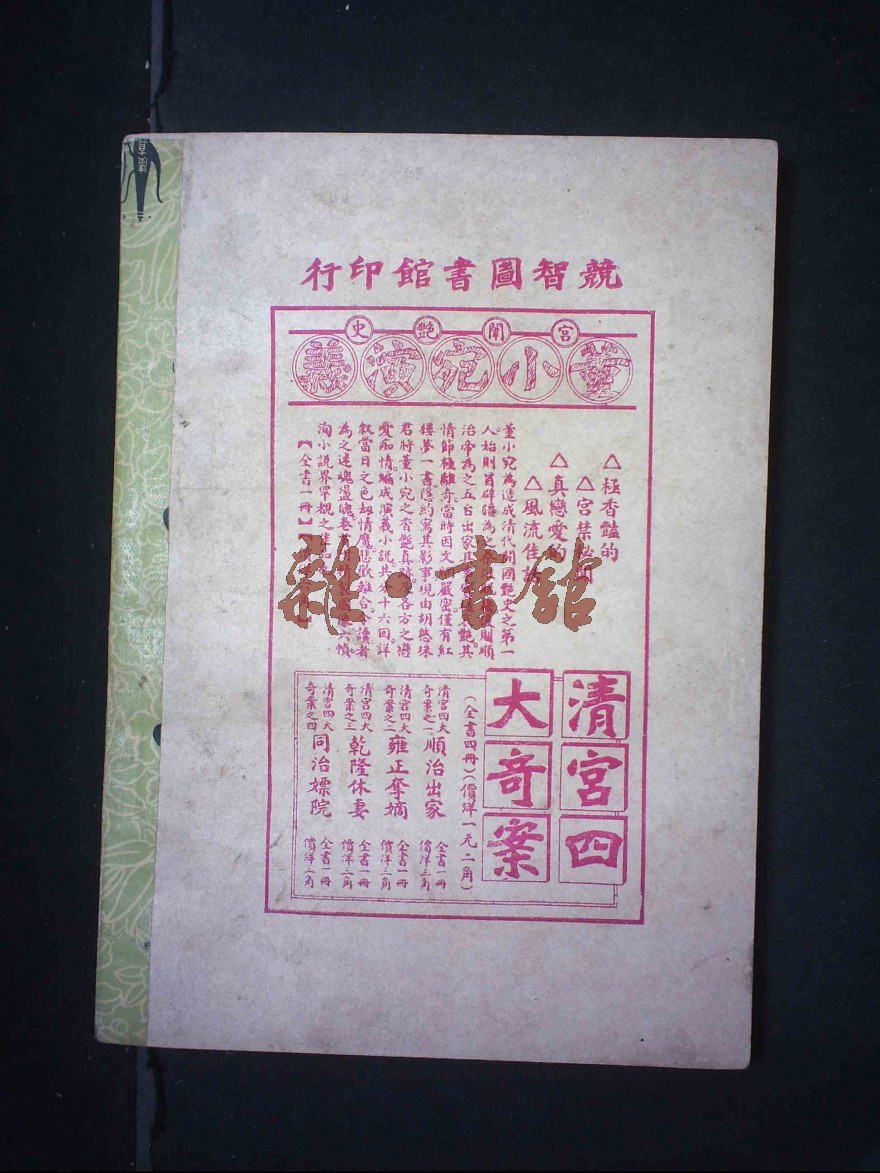 競智圖書館印行
宮闈艷史
董小宛演義
△極香豔的
△宮禁秘聞
△真戀愛的
△風流佳話
董小宛為造成清代開國艷史之第一
人始則冒辟疆為之 則順
治帝為之五台出家其 艷其
情節極離奇當時因文 嚴密僅有紅
樓夢一書隱約寫其影事現由胡憨珠
君將董小宛之香艷真 各方之遷
愛痴情編成演義小說共分十六回詳
叙當日之色劫情魔悲歡離合令讀者
為之迷魂盪魄卷 六幀
洵小說界罕覩之
【全書一冊】
雜·書館
清宮四
大奇案
(全書四冊)(價洋一元二角)
清宮四大奇案之一 順治出家 全書一冊 價洋三角
清宮四大奇案之二 雍正奪嫡 全書一冊 價洋三角
清宮四大奇案之三 乾隆休妻 全書一冊 價洋三角
清宮四大奇案之四 同治嫖院 全書一冊 價洋三角